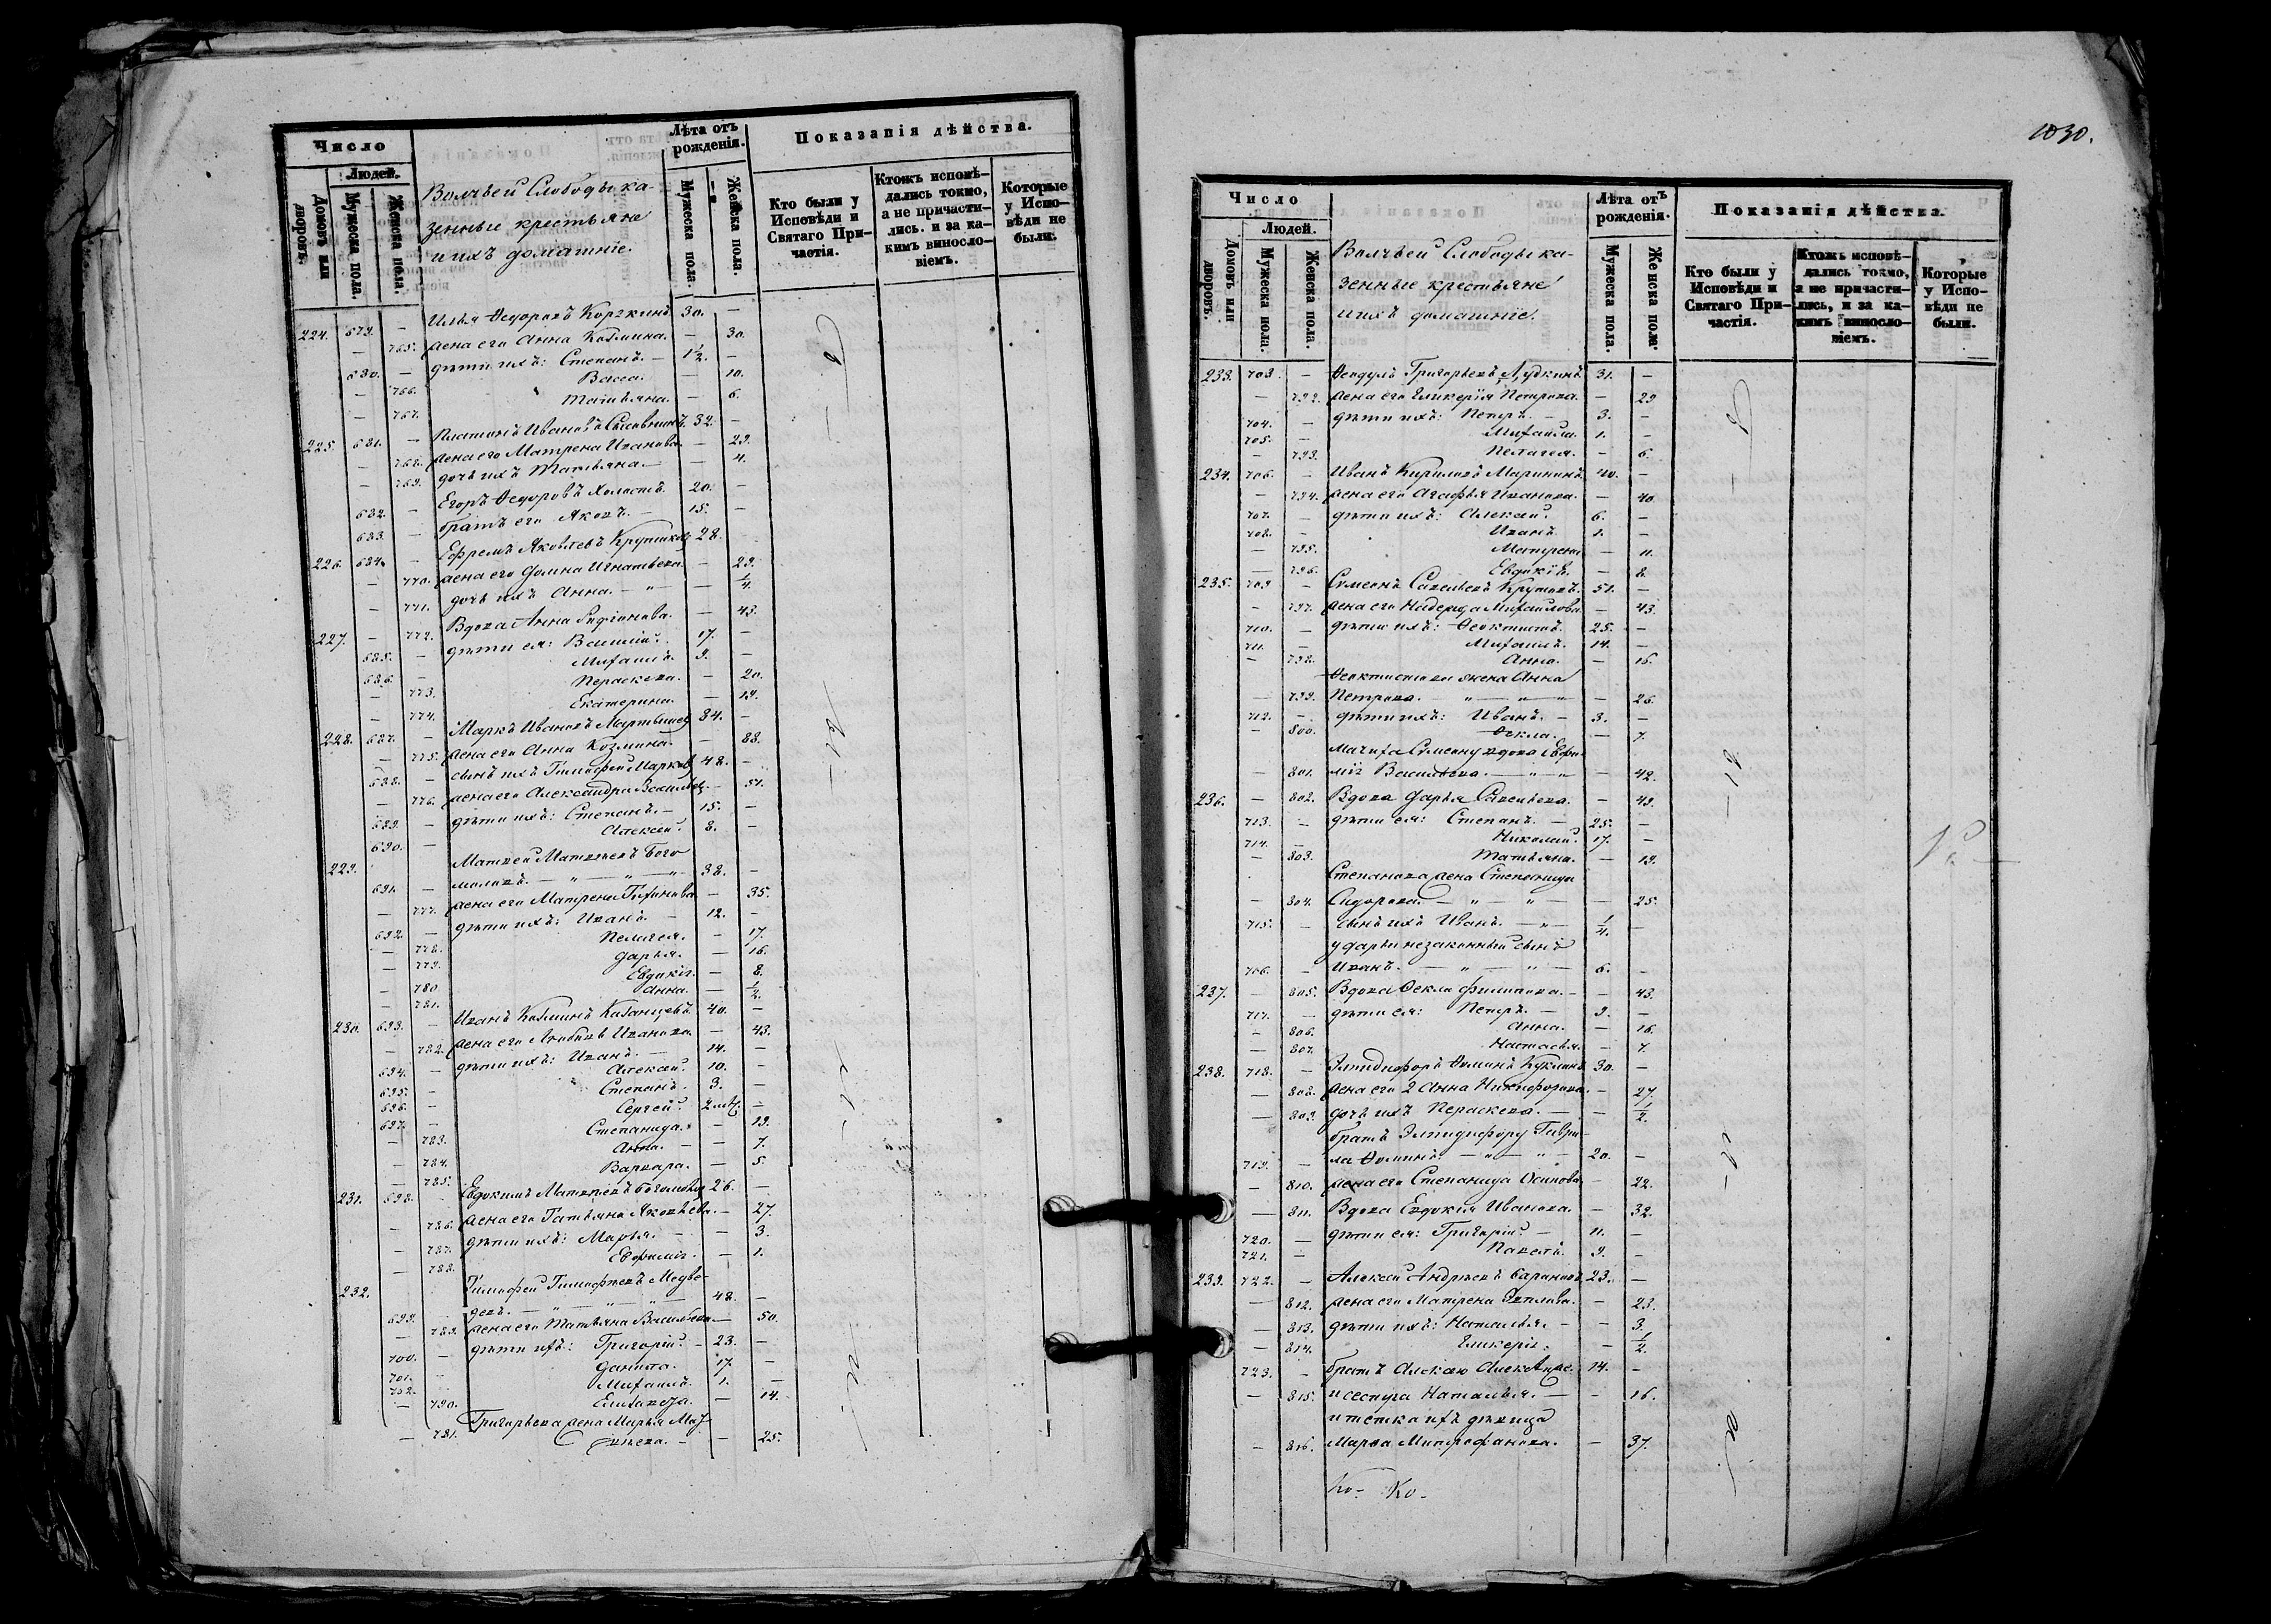 Число
Людей.
Домовъ или дворовъ.
Мужеска пола.
Женска пола.
Волчьей Слободы ка-
зенные крестьяне
и ихъ домашніе.
Лѣта отъ рожденія.
Мужеска пола
Женска пола.
Показанія дѣйства.
Кто были у Исповѣди и Святаго Причастія.
Ктожъ исповѣ-
дались токмо,
а не причасти-
лись. и за ка-
кимъ виносло-
віемъ.
Которые
у Испо-
вѣди не
были.
224. 679. — Илья Ѳедоровъ 30. —
— 765. жена его Анна Козмина. — 30.
680. — дѣти ихъ: Степанъ. — 1½. —
— 766. Васса. — 10.
— 767. Татьяна. — 6.
225. 681. — Платонъ Ивановъ 32. —
— 768. жена его Матрена Иванова. — 29.
— 769. дочь ихъ Татьяна. — — 4.
682. — Егоръ Ѳедоровъ 20. —
683. — братъ его Яковъ. — 15. —
226. 684. — Ефремъ Яковлевъ 28.
— 770. жена его Домна Игнатьева. — 29.
— 771. дочь ихъ Анна. — „ — — ¼.
227. — 772. Вдова Анна — 43.
685. — дѣти ея: Василій. 17. —
686. — Михаилъ. 9. —
— 773. Параскева. — 20.
— 774. Екатерина. — 19.
228. 687. — Маркъ Ивановъ 84. —
— 775. жена его Анна Козмина. — 88.
688. — сынъ ихъ Тимофей Марковъ 48. —
— 776. жена его Александра — 51.
689. — дѣти ихъ: Степанъ. — 15. —
690. — Алексей. 8. —
229. Матвей Матвѣевъ Бого
691. — моловъ. — „ — „ — „ — 38. —
— 777. жена его Матрена — 35.
692. — дѣти ихъ: Иванъ. — 12. —
— 778. Пелагея. — 17.
— 779. Дарья. — 16.
— 780 Евдокія. — 8.
— 781. Анна. — ½.
230. 693. — Иванъ Козминъ Казанцевъ. 40. —
— 782. жена его Любовь Иванова. — 43.
694. — дѣти ихъ: Иванъ. — 14. —
695. — Алексей. 10. —
696. — Степанъ. 3. —
697. — Сергей. —
— 783. Степанида. — 19.
— 784. Анна. — — 7.
— 785. Варвара. — 5.
231. 698. Евдокимъ Матвѣевъ 26. —
— 786. жена его Татьяна Яковлева. — 27.
— 787. дѣти ихъ: Марья. — — 3.
— 788. Евфимія. — 1.
232. Тимофей Тимофѣевъ Медве-
699. девъ. — „ — „ — „ — 48. —
— 789. жена его Татьяна Васильева — 50.
700. — дѣти ихъ: Григорій. — 23. —
701. Данила. 17. —
702. Михаилъ. 1. —
— 790. — 14.
— 791. Григорьева жена Марья
— 25.
1030.
Число
Людей.
Домовъ или дворовъ.
Мужеска пола.
Женска пола.
Волчьей Слободы ка-
зенные крестьяне
и ихъ домашніе.
Лѣта отъ рожденія.
Мужеска пола.
Женска пола.
Показанія дѣйства.
Кто были у Исповѣди и Святаго При-
частія.
Ктожъ исповѣ-
дались токмо,
а не причасти-
лись, и за ка-
кимъ виносло-
віемъ.
Которые
у Испо-
вѣди не
были.
233. 703. — Григорьевъ 31. —
— 792. жена его Гликерія Петрова. — 29
704. — дѣти ихъ: Петръ. — 3. —
705. — Михаила. 1. —
— 793. Пелагея. — 6.
234. 706. — Иванъ Кириловъ Марининъ 40. —
— 794. жена его Агафья Иванова. — 40.
707. — дѣти ихъ: Алексей. 6. —
708. — Иванъ. 1. —
— 795. Матрена — 11.
— 796. Евдокія. — 8.
235. 709 — Симеонъ Савельевъ 51. —
— 797. жена его Надежда Михайлова. — 43.
710. — дѣти ихъ: Ѳеоктистъ. 25. —
711. — Михаилъ. 14. —
— 798. Анна. — 16.
Ѳеоктистова жена Анна
— 799. Петрова. „ — „ — „ — 26.
712. — дѣти ихъ: Иванъ. — 3. —
— 800. Ѳекла. — 7.
Мачиха Симеону вдова Евфи-
— 801. мія Васильева. — „ — „ — 42.
236. — 802. Вдова Дарья Савельева. — 49.
713. — дѣти ея: Степанъ. — 25. —
714. — Николай. 17. —
— 803. Татьяна. — 19.
Степанова жена Степанида
— 804. Сидорова. — „ — „ — — 25.
715. — сынъ ихъ Иванъ. — „ — ¼. —
у Дарьи незаконный сынъ
716. — Иванъ. — „ — „ — 6. —
237. — 805. Вдова Ѳекла Филипова. — — 43.
717. — дѣти ея: Петръ. — 9. —
— 806. Анна. — 16.
— 807. Настасья. — 7.
238. 718. — Элпидифоръ Ѳоминъ Куклинъ 30. —
— 808. жена его 2 Анна Никифорова. — 27.
— 809. дочь ихъ Параскева. — — ½.
братъ Элпидифору Гаври-
719. — ла Ѳоминъ. — „ — „ — 20. —
— 810. жена его Степанида Осипова. — 22.
— 811. Вдова Евдокія Иванова. — 32.
720. — дѣти ея: Григорій. — 11. —
721. — Павелъ. 9. —
239. 722. — Алексей Андрѣевъ Барановъ 23. —
— 812. жена его Матрена — 23.
— 813. дѣти ихъ: Наталья. — — 3.
— 814. Гликерія. ½.
723. — братъ Алексею 14. —
— 815. и сестра Наталья. — — 16.
и тетка ихъ дѣвица
— 816. Марѳа Митрофанова. — 37.
Ко- Ко-